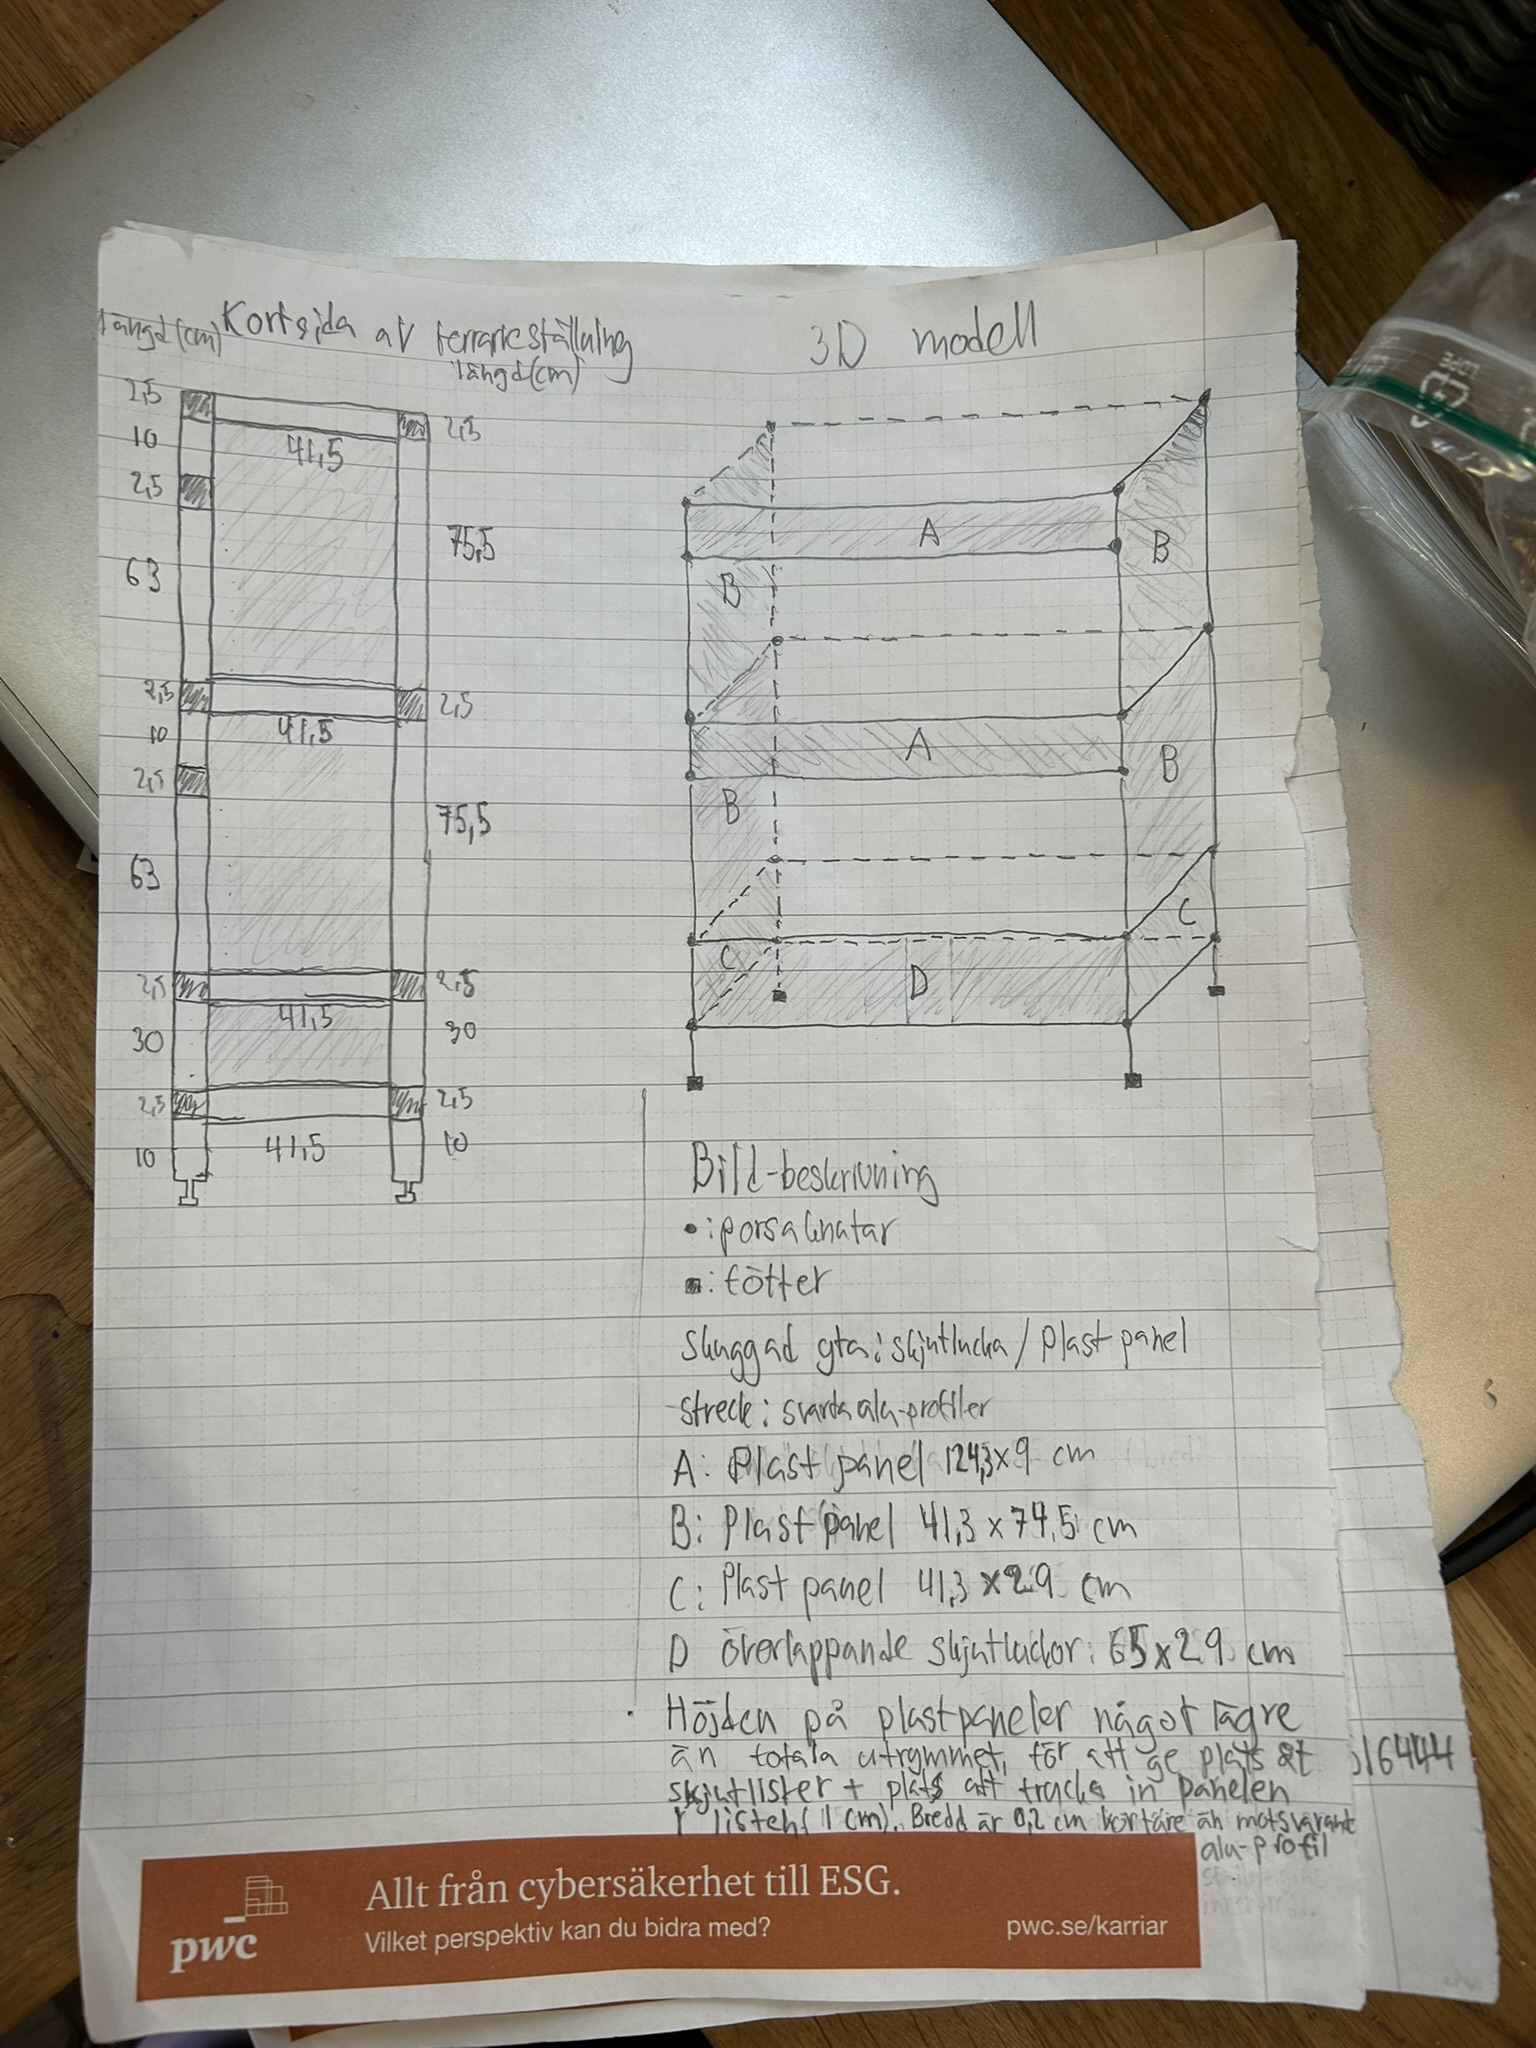 Längd (cm)
Kortsida av terrarieställning
längd (cm)
2,5
10
2,5
63
2,5
10
2,5
63
2,5
30
2,5
10
41,5
41,5
41,5
41,5
2,5
75,5
2,5
75,5
2,5
30
2,5
10
3D modell
A
B
B
A
B
B
C
C
D
Bild-beskrivning
•: porsaknatar
■: fötter
skuggad yta: skjutlucka / plast panel
streck: svarta alu-profiler
A: Plast panel 124,3 x 9 cm
B: Plast panel 41,3 x 74,5 cm
C: Plast panel 41,3 x 29 cm
D överlappande skjutluckor: 65 x 29 cm
Höjden på plastpaneler något lägre
än totala utrymmet, för att ge plats åt
skjutlister + plats att trycka in panelen
i listen (1 cm). Bredd är 0,2 cm kortare än motsvarande
alu-profil
16444
pwc
Allt från cybersäkerhet till ESG.
Vilket perspektiv kan du bidra med?
pwc.se/karriar